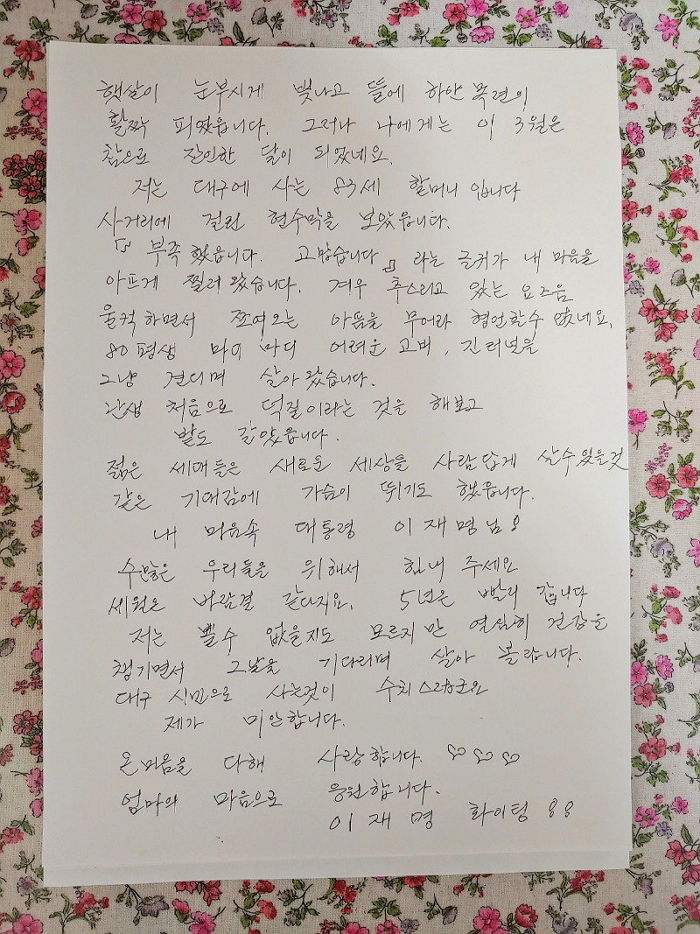 햇살이 눈부시게 빛나고 뜰에 하얀 목련이
활짝 피였읍니다. 그러나 나에게는 이 3월은
참으로 잔인한 달이 되였네요.
저는 대구에 사는 83세 할머니 입니다
사거리에 걸린 현수막을 보았읍니다.
『부족했읍니다. 고맙습니다』 라는 글귀가 내 마음을
아프게 찔러 왔습니다. 겨우 추스리고 있는 요즈음
울컥 하면서 쪼여오는 아픔을 무어라 형언할수 없네요.
80평생 마디 마디 어려운 고비, 긴 터널을
그냥 견디며 살아 왔습니다.
난생 처음으로 덕질이라는 것을 해보고
밤도 같았읍니다.
젊은 세대들은 새로운 세상을 사람답게 살수있을것
같은 기대감에 가슴이 뛰기도 했읍니다.
내 마음속 대통령 이재명님!
수많은 우리들을 위해서 힘내 주세요
세월은 바람결 같다지요. 5년은 빨리 갑니다
저는 뵐수 없을지도 모르지만 열심히 건강을
챙기면서 그날을 기다리며 살아 볼랍니다.
대구 시민으로 사는것이 수치스러군요
제가 미안합니다.
온마음을 다해 사랑합니다. ♡♡♡
엄마의 마음으로 응원합니다.
이 재 명 화이팅 !!